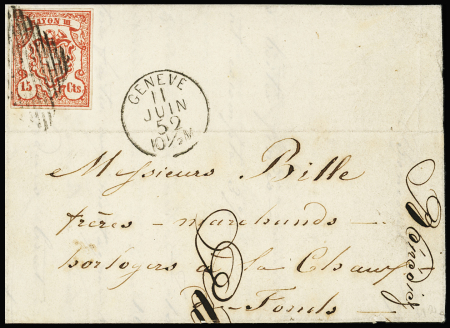 RAYON III
15 Cts.
GENEVE
11
JUIN
52
10½M
Messieurs Bille
frères – marchands –
horlogers à la Chaux
de – Fonds –